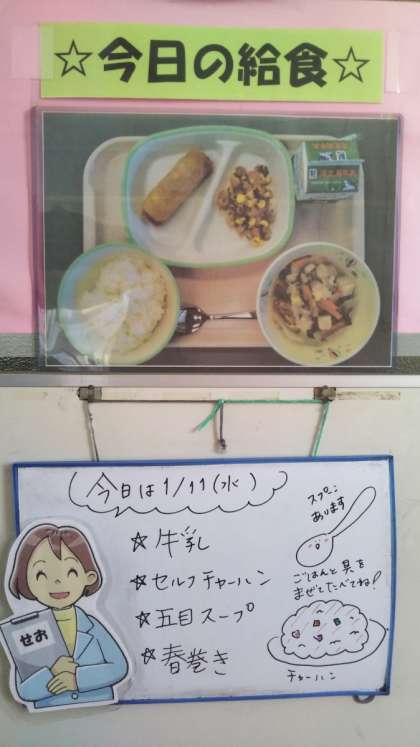 ☆今日の給食☆
今日は1/11(水)
☆牛乳
☆セルフチャーハン
☆五目スープ
☆春巻き
スプーン
あります
ごはんと具を
まぜてたべてね!
チャーハン
せお